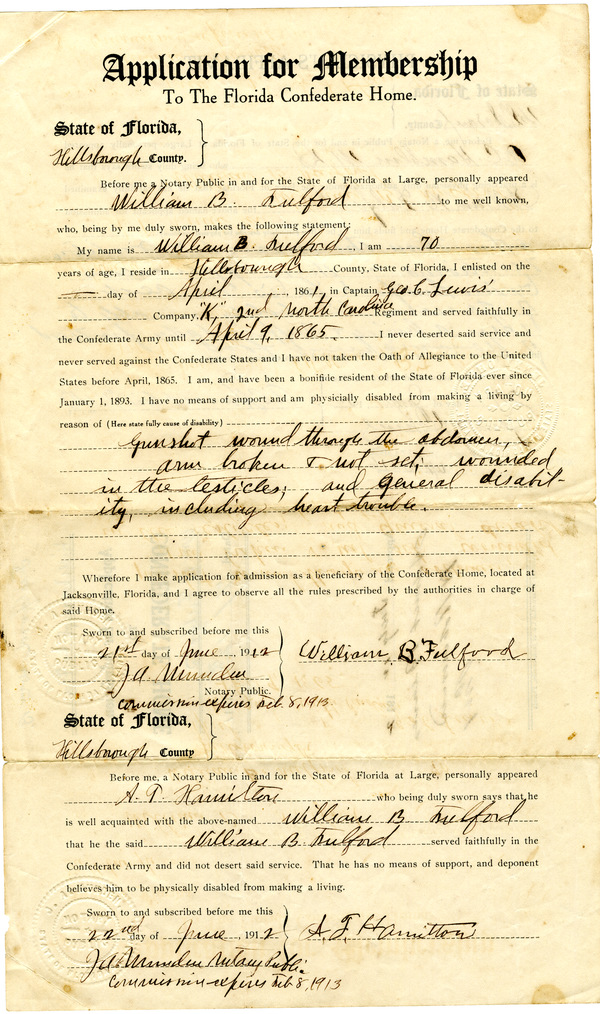 Application for Membership
To The Florida Confederate Home.
State of Florida,
Hillsborough County.
Before me a Notary Public in and for the State of Florida at Large, personally appeared
William B. Fulford to me well known,
who, being by me duly sworn, makes the following statement:
My name is William B. Fulford, I am 70
years of age, I reside in Hillsborough County, State of Florida, I enlisted on the
— day of April, 1861, in Captain Geo. C. Lewis'
Company, "K," 2nd North Carolina Regiment and served faithfully in
the Confederate Army until April 9, 1865. I never deserted said service and
never served against the Confederate States and I have not taken the Oath of Allegiance to the United
States before April, 1865. I am, and have been a bonifide resident of the State of Florida ever since
January 1, 1893. I have no means of support and am physicially disabled from making a living by
reason of (Here state fully cause of disability)
Gunshot wound through the abdomen,
arm broken & not set; wounded
in the testicles; and general disabil-
ity, including heart trouble.
Wherefore I make application for admission as a beneficiary of the Confederate Home, located at
Jacksonville, Florida, and I agree to observe all the rules prescribed by the authorities in charge of
said Home.
Sworn to and subscribed before me this
21st day of June 1912
William B Fulford
Notary Public.
Commission expires Feb. 8, 1913.
State of Florida,
Hillsborough County
Before me, a Notary Public in and for the State of Florida at Large, personally appeared
A. T. Hamilton who being duly sworn says that he
is well acquainted with the above-named William B Fulford
that he the said William B. Fulford served faithfully in the
Confederate Army and did not desert said service. That he has no means of support, and deponent
believes him to be physically disabled from making a living.
Sworn to and subscribed before me this
22nd day of June 1912
A. T. Hamilton
Notary Public.
Commission expires Feb. 8, 1913